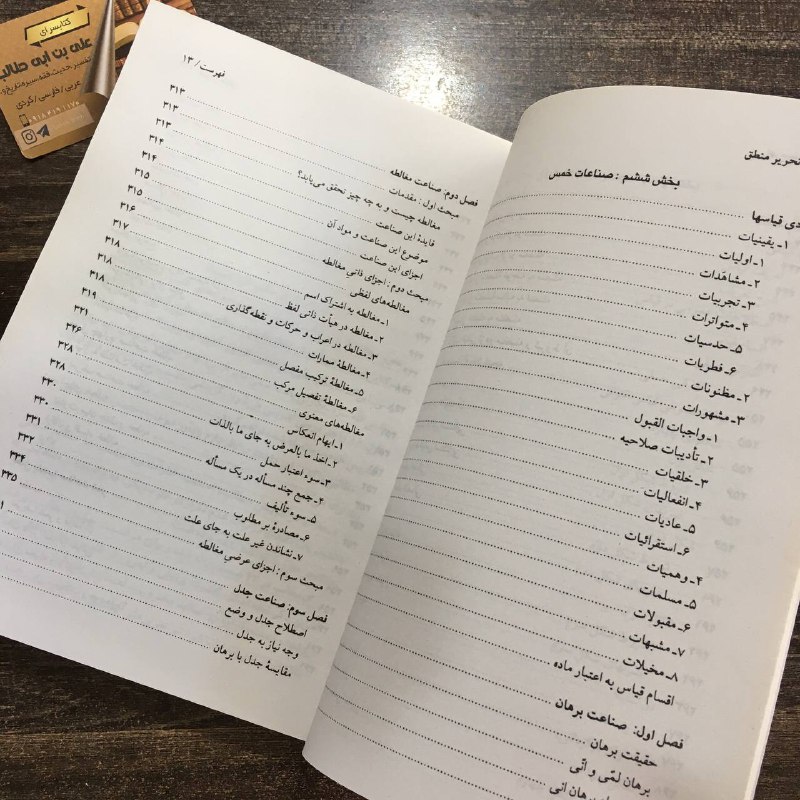 کتابسرای
علی بن ابی طالب
تفسیر، حدیث، فقه، سیره، تاریخ و
عربی / فارسی / کردی
تحریر منطق
بخش ششم : صناعات خمس
دی قیاسها
۱ـ یقینیات
۱ـ اولیات
۲ـ مشاهدات
۳ـ تجربیات
۴ـ متواترات
۵ـ حدسیات
۶ـ فطریات
۲ـ مظنونات
۳ـ مشهورات
۱ـ واجبات القبول
۲ـ تأدیبات صلاحیه
۳ـ خلقیات
۴ـ انفعالیات
۵ـ عادیات
۶ـ استقرائیات
۴ـ وهمیات
۵ـ مسلمات
۶ـ مقبولات
۷ـ مشبهات
۸ـ مخیلات
اقسام قیاس به اعتبار ماده
فصل اول: صناعت برهان
حقیقت برهان
برهان لمّی و انّی
برهان انی
فهرست / ۱۳
فصل دوم: صناعت مغالطه ۳۱۳
مبحث اول : مقدمات ۳۱۳
مغالطه چیست و به چه چیز تحقق می‌یابد؟ ۳۱۳
فایدهٔ این صناعت ۳۱۴
موضوع این صناعت و مواد آن ۳۱۴
اجزای این صناعت ۳۱۵
مبحث دوم : اجزای ذاتی مغالطه ۳۱۵
مغالطه‌های لفظی ۳۱۶
۱ـ مغالطه به اشتراک اسم ۳۱۷
۲ـ مغالطه در هیأت ذاتی لفظ ۳۱۸
۳ـ مغالطه در اعراب و حرکات و نقطه‌گذاری ۳۱۸
۴ـ مغالطهٔ ممارات ۳۱۸
۵ـ مغالطهٔ ترکیب مفصل ۳۱۹
۶ـ مغالطهٔ تفصیل مرکب ۳۲۱
مغالطه‌های معنوی ۳۲۶
۱ـ ایهام انعکاس ۳۲۸
۲ـ اخذ ما بالعرض به جای ما بالذات ۳۲۸
۳ـ سوء اعتبار حمل ۳۳۰
۴ـ جمع چند مسأله در یک مسأله ۳۳۰
۵ـ سوء تألیف ۳۳۱
۶ـ مصادرهٔ بر مطلوب ۳۳۲
۷ـ نشاندن غیر علت به جای علت ۳۳۴
مبحث سوم : اجزای عرضی مغالطه ۳۳۵
فصل سوم: صناعت جدل
اصطلاح جدل و وضع
وجه نیاز به جدل
مقایسهٔ جدل با برهان